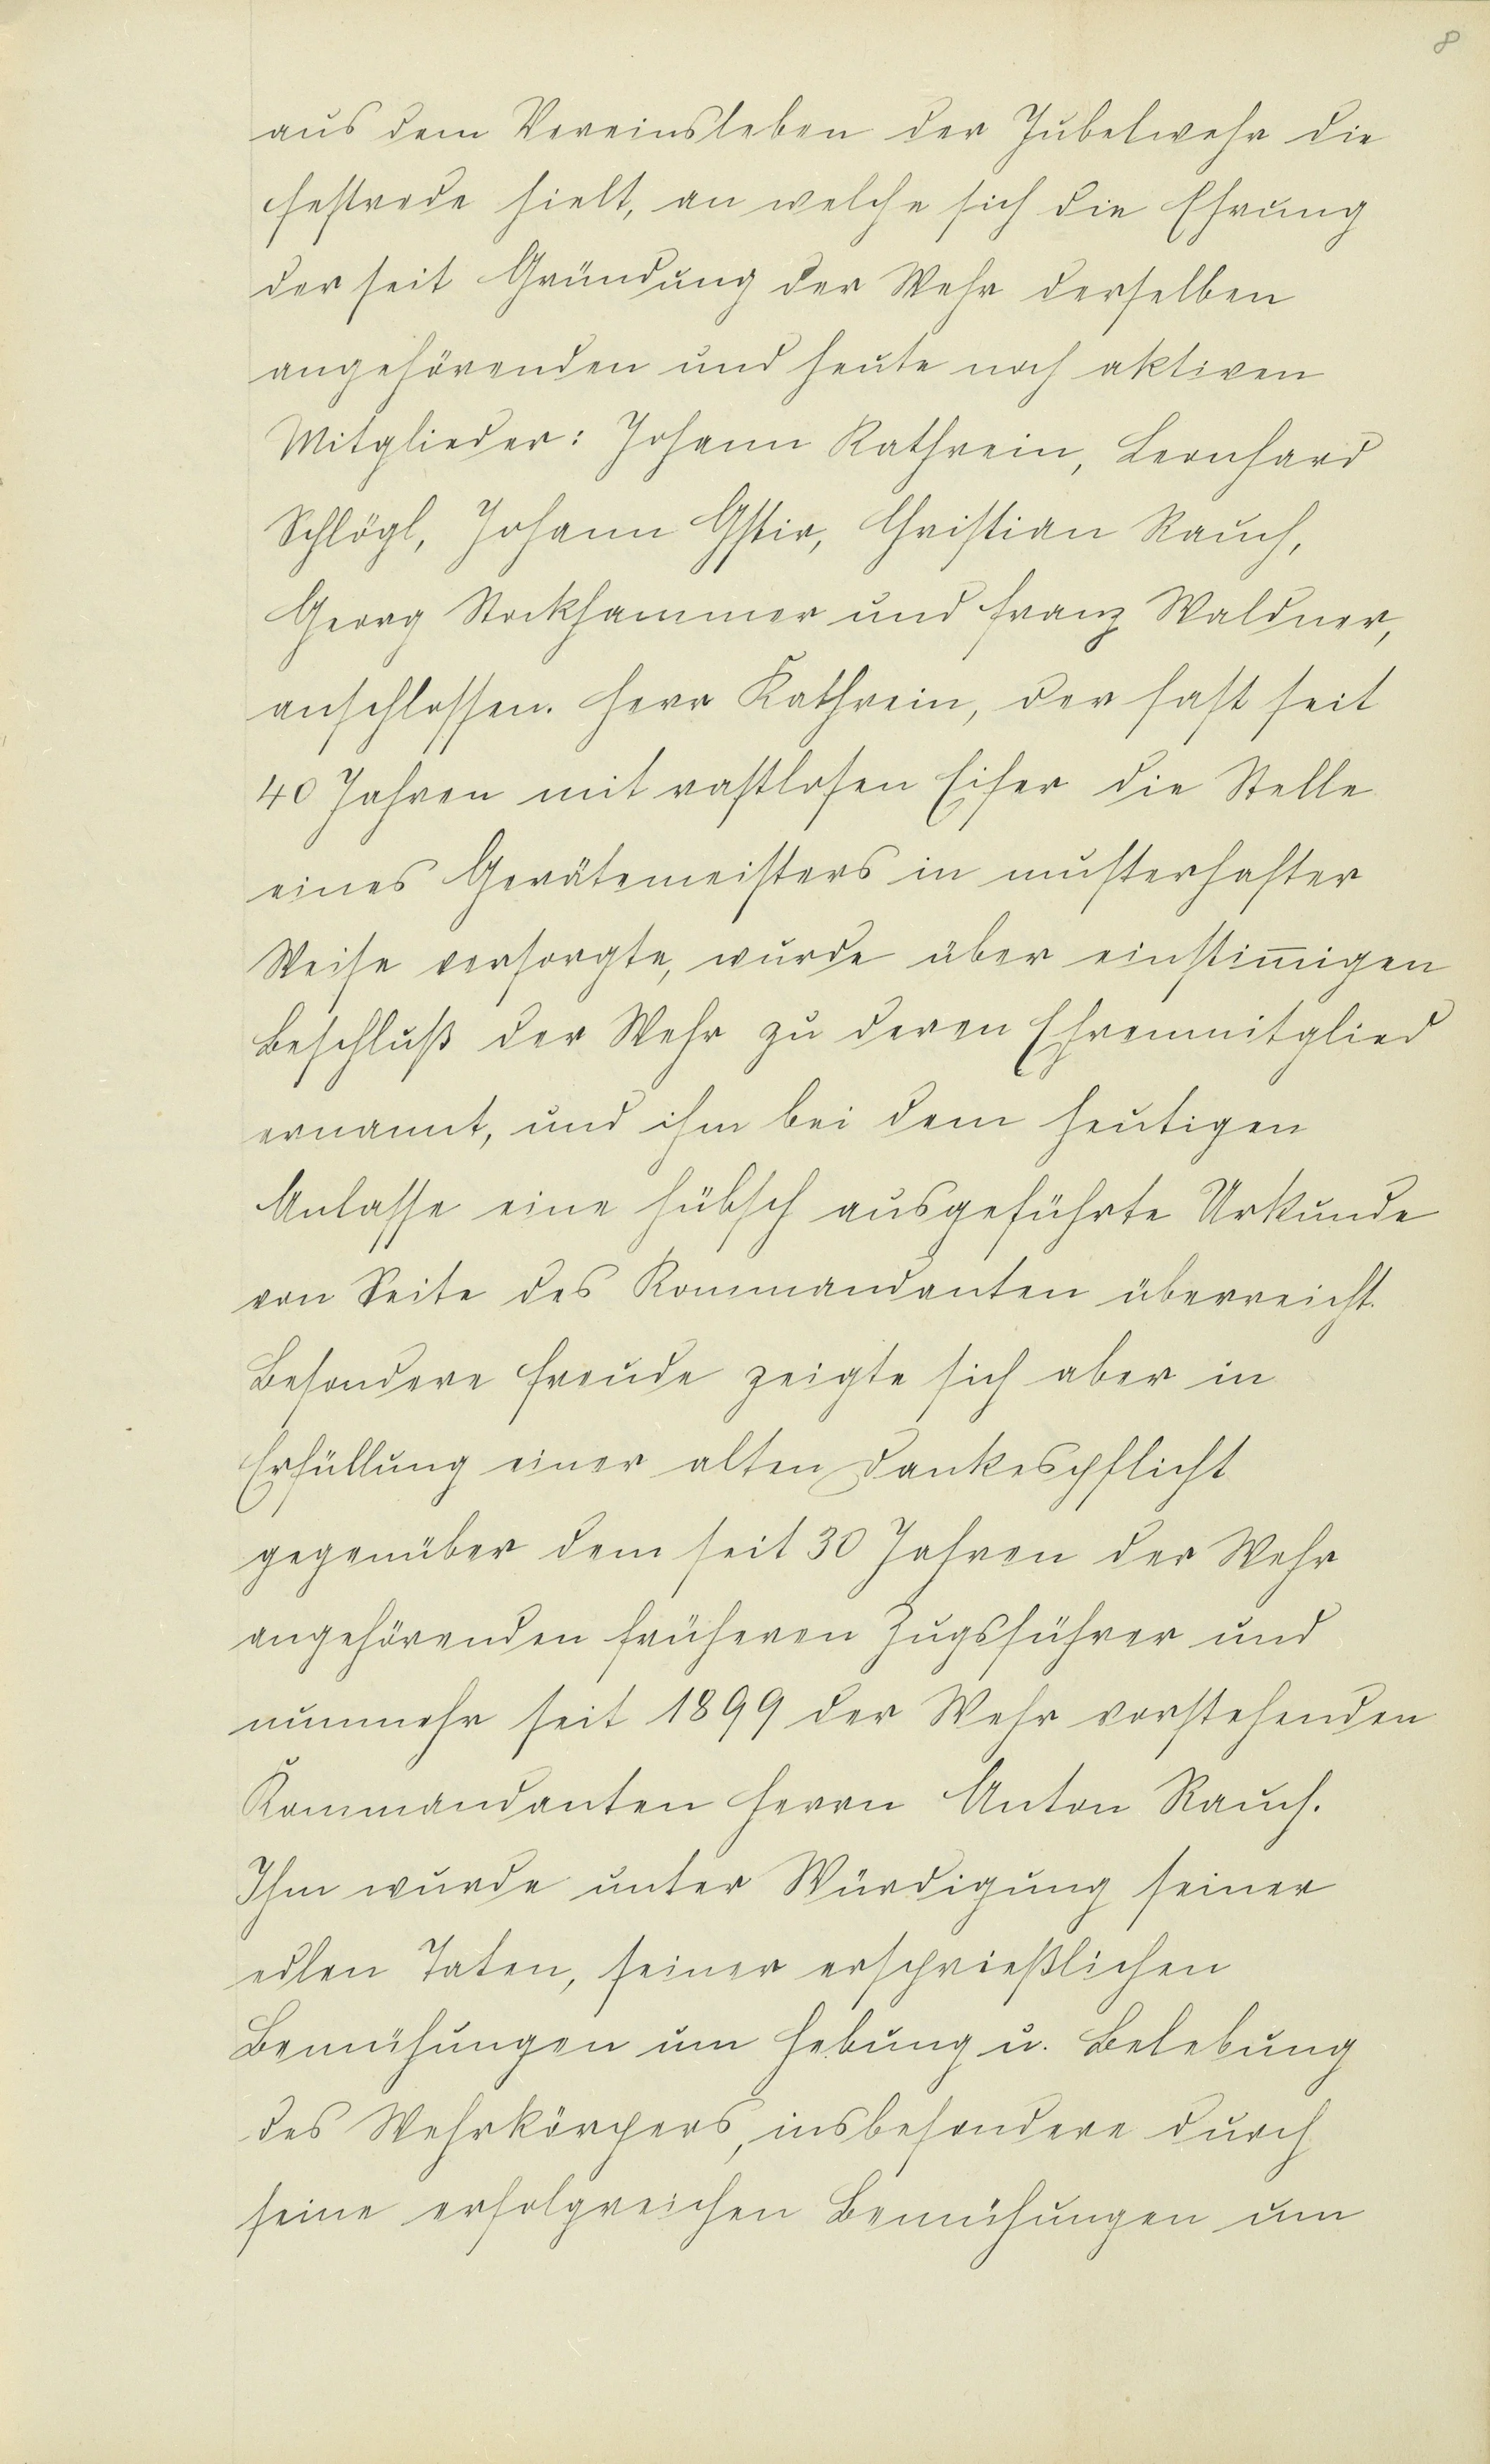 8
aus dem Vereinsleben der Jubelwehr die
Festrede hielt, an welche sich die Ehrung
der seit Gründung der Wehr derselben
angehörenden und heute noch aktiven
Mitglieder: Johann Kathrein, Leonhard
Schlögl, Johann Gstir, Christian Rauch,
Georg Stockhammer und Franz Waldner,
anschlossen. Herr Kathrein, der fast seit
40 Jahren mit rastlosen Eifer die Stelle
eines Gerätemeisters in musterhafter
Weise versorgte, wurde über einstim̅igen
Beschluß der Wehr zu deren Ehrenmitglied
ernannt, und ihm bei dem heutigen
Anlasse eine hübsch ausgeführte Urkunde
von Seite des Kommandanten überreicht.
Besondere Freude zeigte sich aber in
Erfüllung einer alten Dankespflicht
gegenüber dem seit 30 Jahren der Wehr
angehörenden früheren Zugsführer und
nunmehr seit 1899 der Wehr vorstehenden
Kommandanten Herrn Anton Rauch.
Ihm wurde unter Würdigung seiner
edlen Taten, seiner ersprießlichen
Bemühungen um Hebung u. Belebung
des Wehrkörpers, insbesondere durch
seine erfolgreichen Bemühungen um